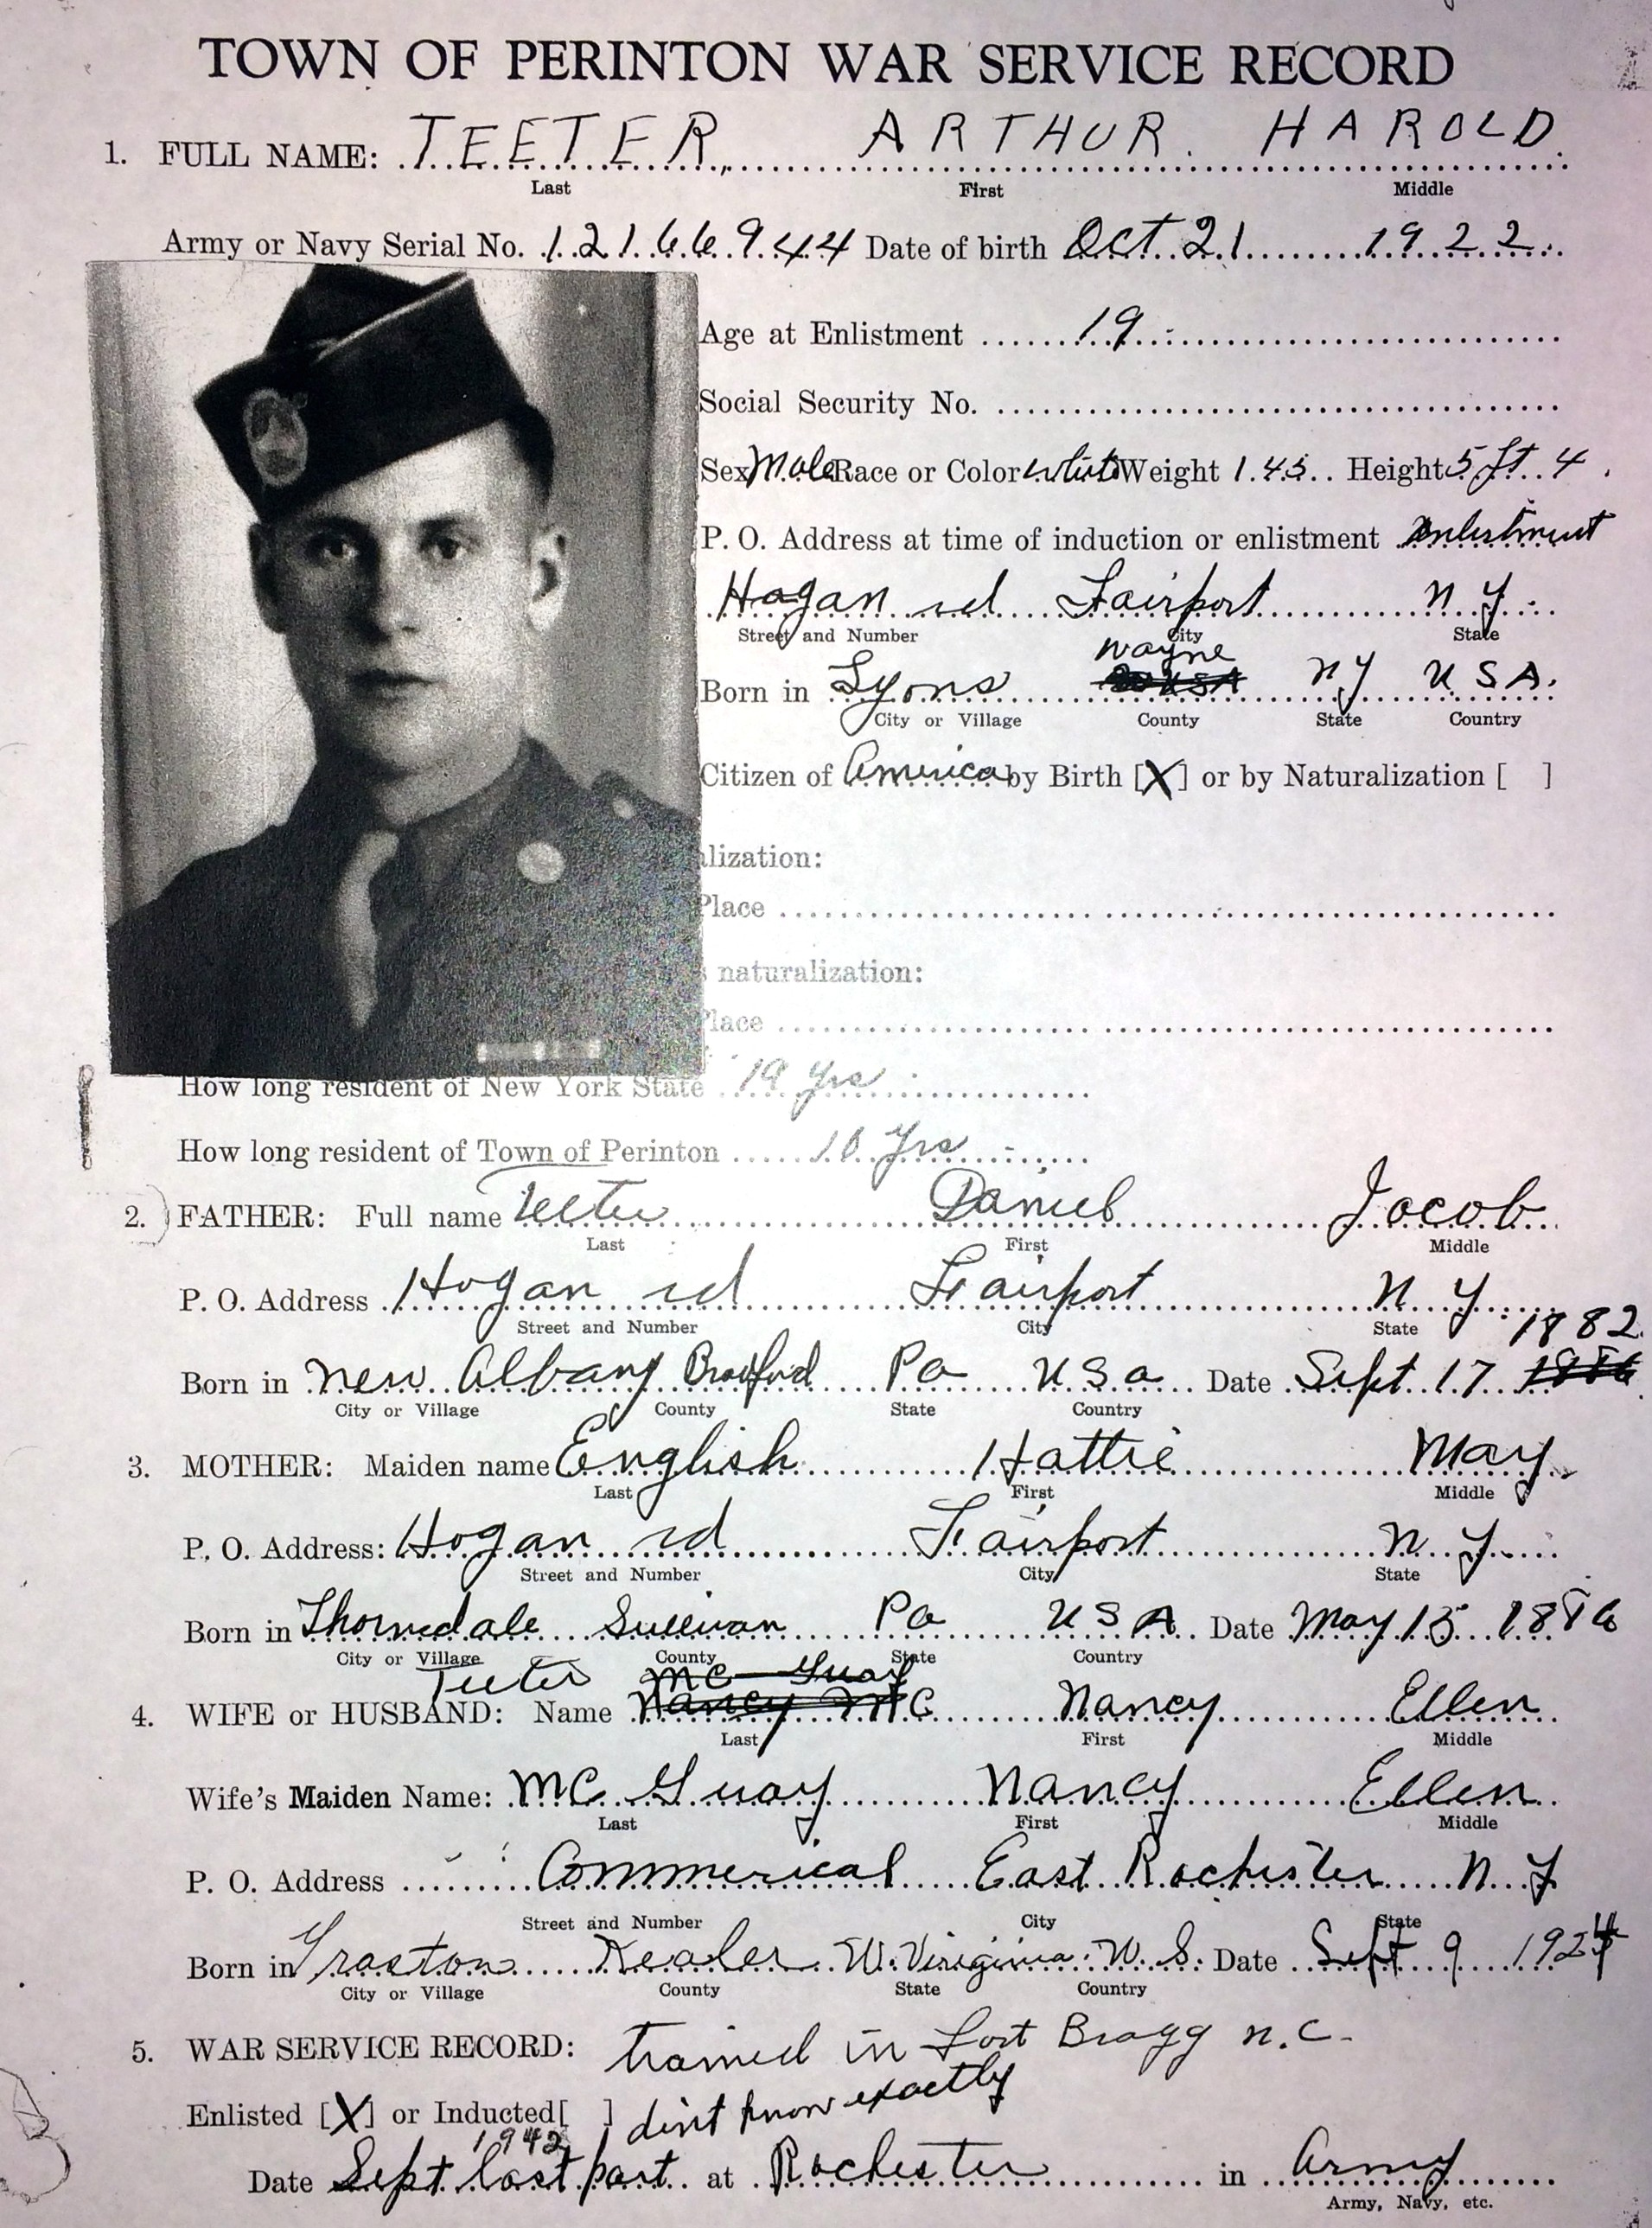 TOWN OF PERINTON WAR SERVICE RECORD
1. FULL NAME: TEETER, ARTHUR HAROLD
Last First Middle
Army or Navy Serial No. 12166944 Date of birth Oct 21 1922
Age at Enlistment 19
Social Security No.
Sex Male Race or Color white Weight 145 Height 5 ft 4
P. O. Address at time of induction or enlistment enlistment
Hogan rd Fairport N Y
Street and Number City State
Wayne
Born in Lyons NY USA
City or Village County State Country
Citizen of America by Birth [X] or by Naturalization [ ]
alization:
Place
s naturalization:
Place
How long resident of New York State 19 yrs
How long resident of Town of Perinton 10 Yrs
2. FATHER: Full name Teeter Daniel Jacob
Last First Middle
P. O. Address Hogan rd Fairport N Y
Street and Number City State
1882
Born in New Albany Bradford Pa USa Date Sept 17
City or Village County State Country
3. MOTHER: Maiden name English Hattie May
Last First Middle
P. O. Address: Hogan rd Fairport N Y
Street and Number City State
Born in Thornedale Sullivan Pa USA Date May 15 1886
City or Village County State Country
Teeter Mc Guay
4. WIFE or HUSBAND: Name Nancy Mc Nancy Ellen
Last First Middle
Wife's Maiden Name: MC Guay Nancy Ellen
Last First Middle
P. O. Address Commerical East Rochester N Y
Street and Number City State
Born in W. Virginia U. S. Date Sept 9 1924
City or Village County State Country
5. WAR SERVICE RECORD: trained in Fort Bragg N.C.
Enlisted [X] or Inducted [ ] dint know exactly
1942
Date Sept last part at Rochester in Army
Army, Navy, etc.